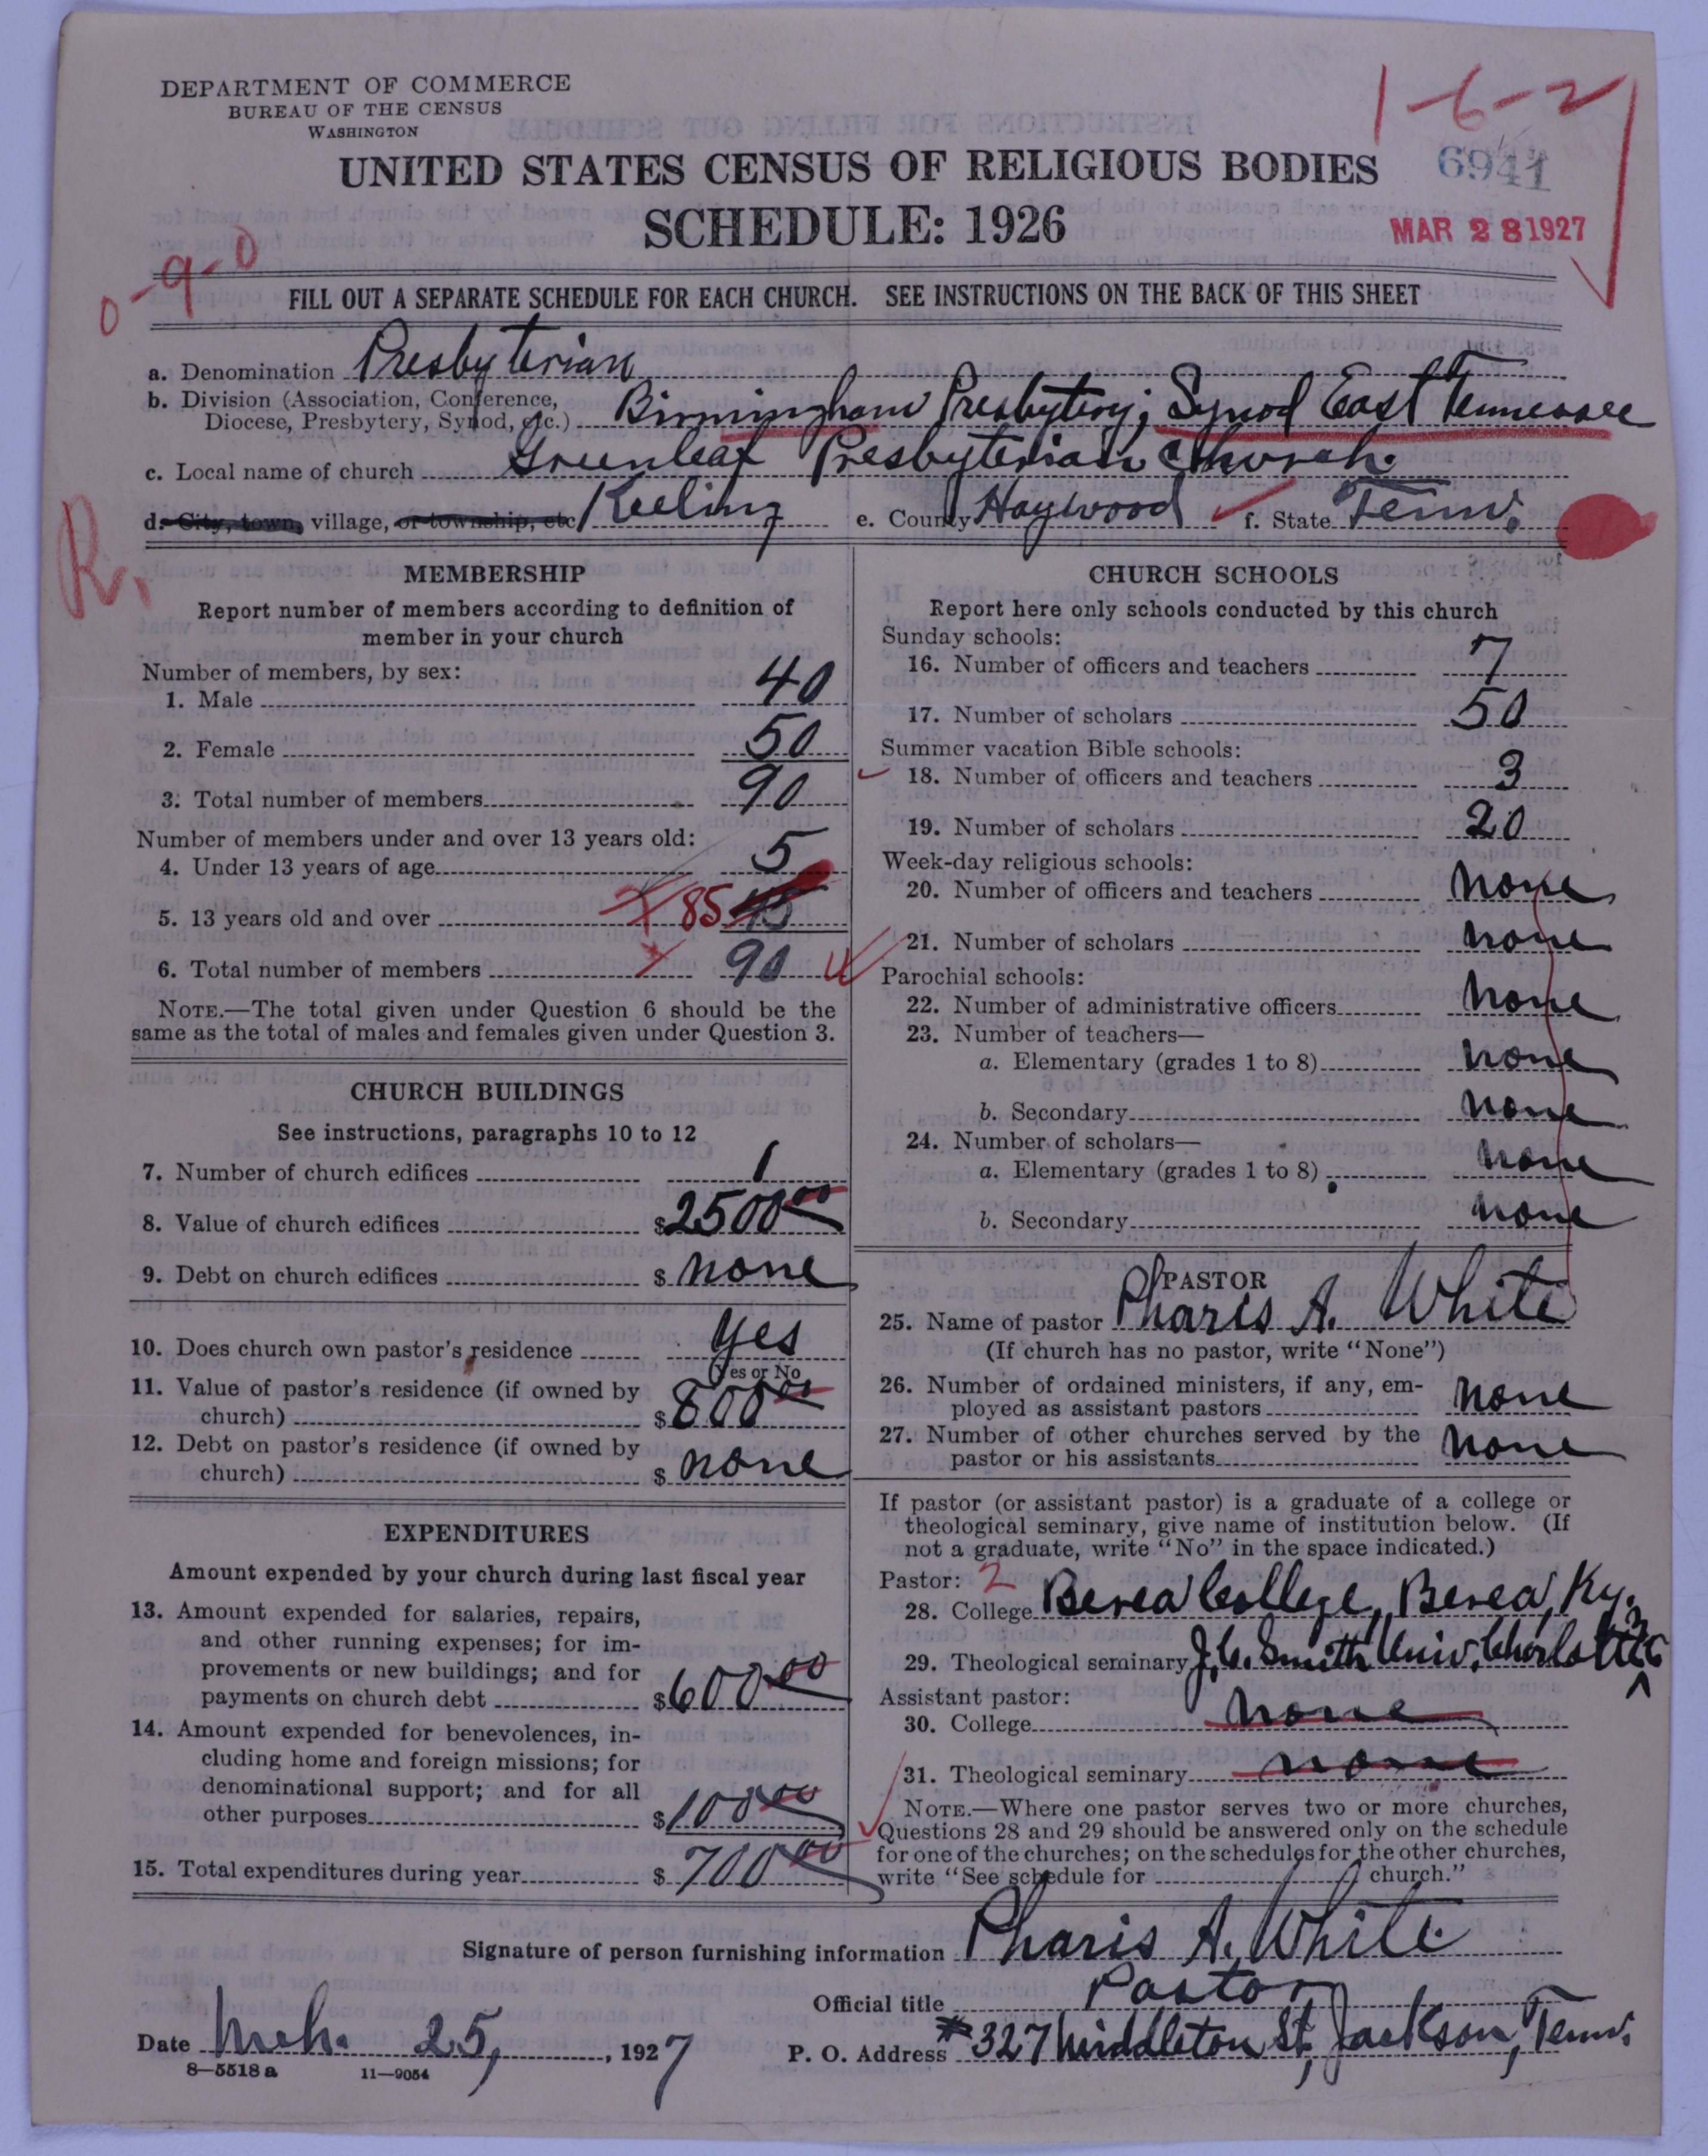 DEPARTMENT OF COMMERCE
BUREAU OF THE CENSUS
WASHINGTON
1-6-2
UNITED STATES CENSUS OF RELIGIOUS BODIES
6941
SCHEDULE: 1926
MAR 28 1927
0-9-0
FILL OUT A SEPARATE SCHEDULE FOR EACH CHURCH. SEE INSTRUCTIONS ON THE BACK OF THIS SHEET
a. Denomination Presbyterian
b. Division (Association, Conference,
Diocese, Presbytery, Synod, etc.) Birmingham Presbytery; Synod East Tennessee
c. Local name of church Greenleaf Presbyterian Church.
d. City, town, village, or township, etc Keeling e. County Haywood f. State Tenn.
R.
MEMBERSHIP
Report number of members according to definition of
member in your church
Number of members, by sex:
1. Male 40
2. Female 50
3. Total number of members 90
Number of members under and over 13 years old:
4. Under 13 years of age 5
5. 13 years old and over 85
6. Total number of members 90
NOTE.—The total given under Question 6 should be the
same as the total of males and females given under Question 3.
CHURCH BUILDINGS
See instructions, paragraphs 10 to 12
7. Number of church edifices 1
8. Value of church edifices $2500 00
9. Debt on church edifices $ none
10. Does church own pastor's residence yes
(Yes or No)
11. Value of pastor's residence (if owned by
church) $800 00
12. Debt on pastor's residence (if owned by
church) $ none
EXPENDITURES
Amount expended by your church during last fiscal year
13. Amount expended for salaries, repairs,
and other running expenses; for im-
provements or new buildings; and for
payments on church debt $600 00
14. Amount expended for benevolences, in-
cluding home and foreign missions; for
denominational support; and for all
other purposes $100 00
15. Total expenditures during year $ 700 00
CHURCH SCHOOLS
Report here only schools conducted by this church
Sunday schools:
16. Number of officers and teachers 7
17. Number of scholars 50
Summer vacation Bible schools:
18. Number of officers and teachers 3
19. Number of scholars 20
Week-day religious schools:
20. Number of officers and teachers none
21. Number of scholars none
Parochial schools:
22. Number of administrative officers none
23. Number of teachers—
a. Elementary (grades 1 to 8) none
b. Secondary none
24. Number of scholars—
a. Elementary (grades 1 to 8) none
b. Secondary none
PASTOR
25. Name of pastor Pharis A. White
(If church has no pastor, write "None")
26. Number of ordained ministers, if any, em-
ployed as assistant pastors none
27. Number of other churches served by the
pastor or his assistants none
If pastor (or assistant pastor) is a graduate of a college or
theological seminary, give name of institution below. (If
not a graduate, write "No" in the space indicated.)
Pastor: 2
28. College Berea College, Berea, Ky.
29. Theological seminary J. C. Smith Univ. Charlotte N C
Assistant pastor:
30. College none
31. Theological seminary none
NOTE.—Where one pastor serves two or more churches,
Questions 28 and 29 should be answered only on the schedule
for one of the churches; on the schedules for the other churches,
write "See schedule for church."
Signature of person furnishing information Pharis A. White
Official title Pastor
Date Mch. 25, , 1927 P. O. Address #327 Middleton St, Jackson, Tenn.
8—5518 a 11—9054